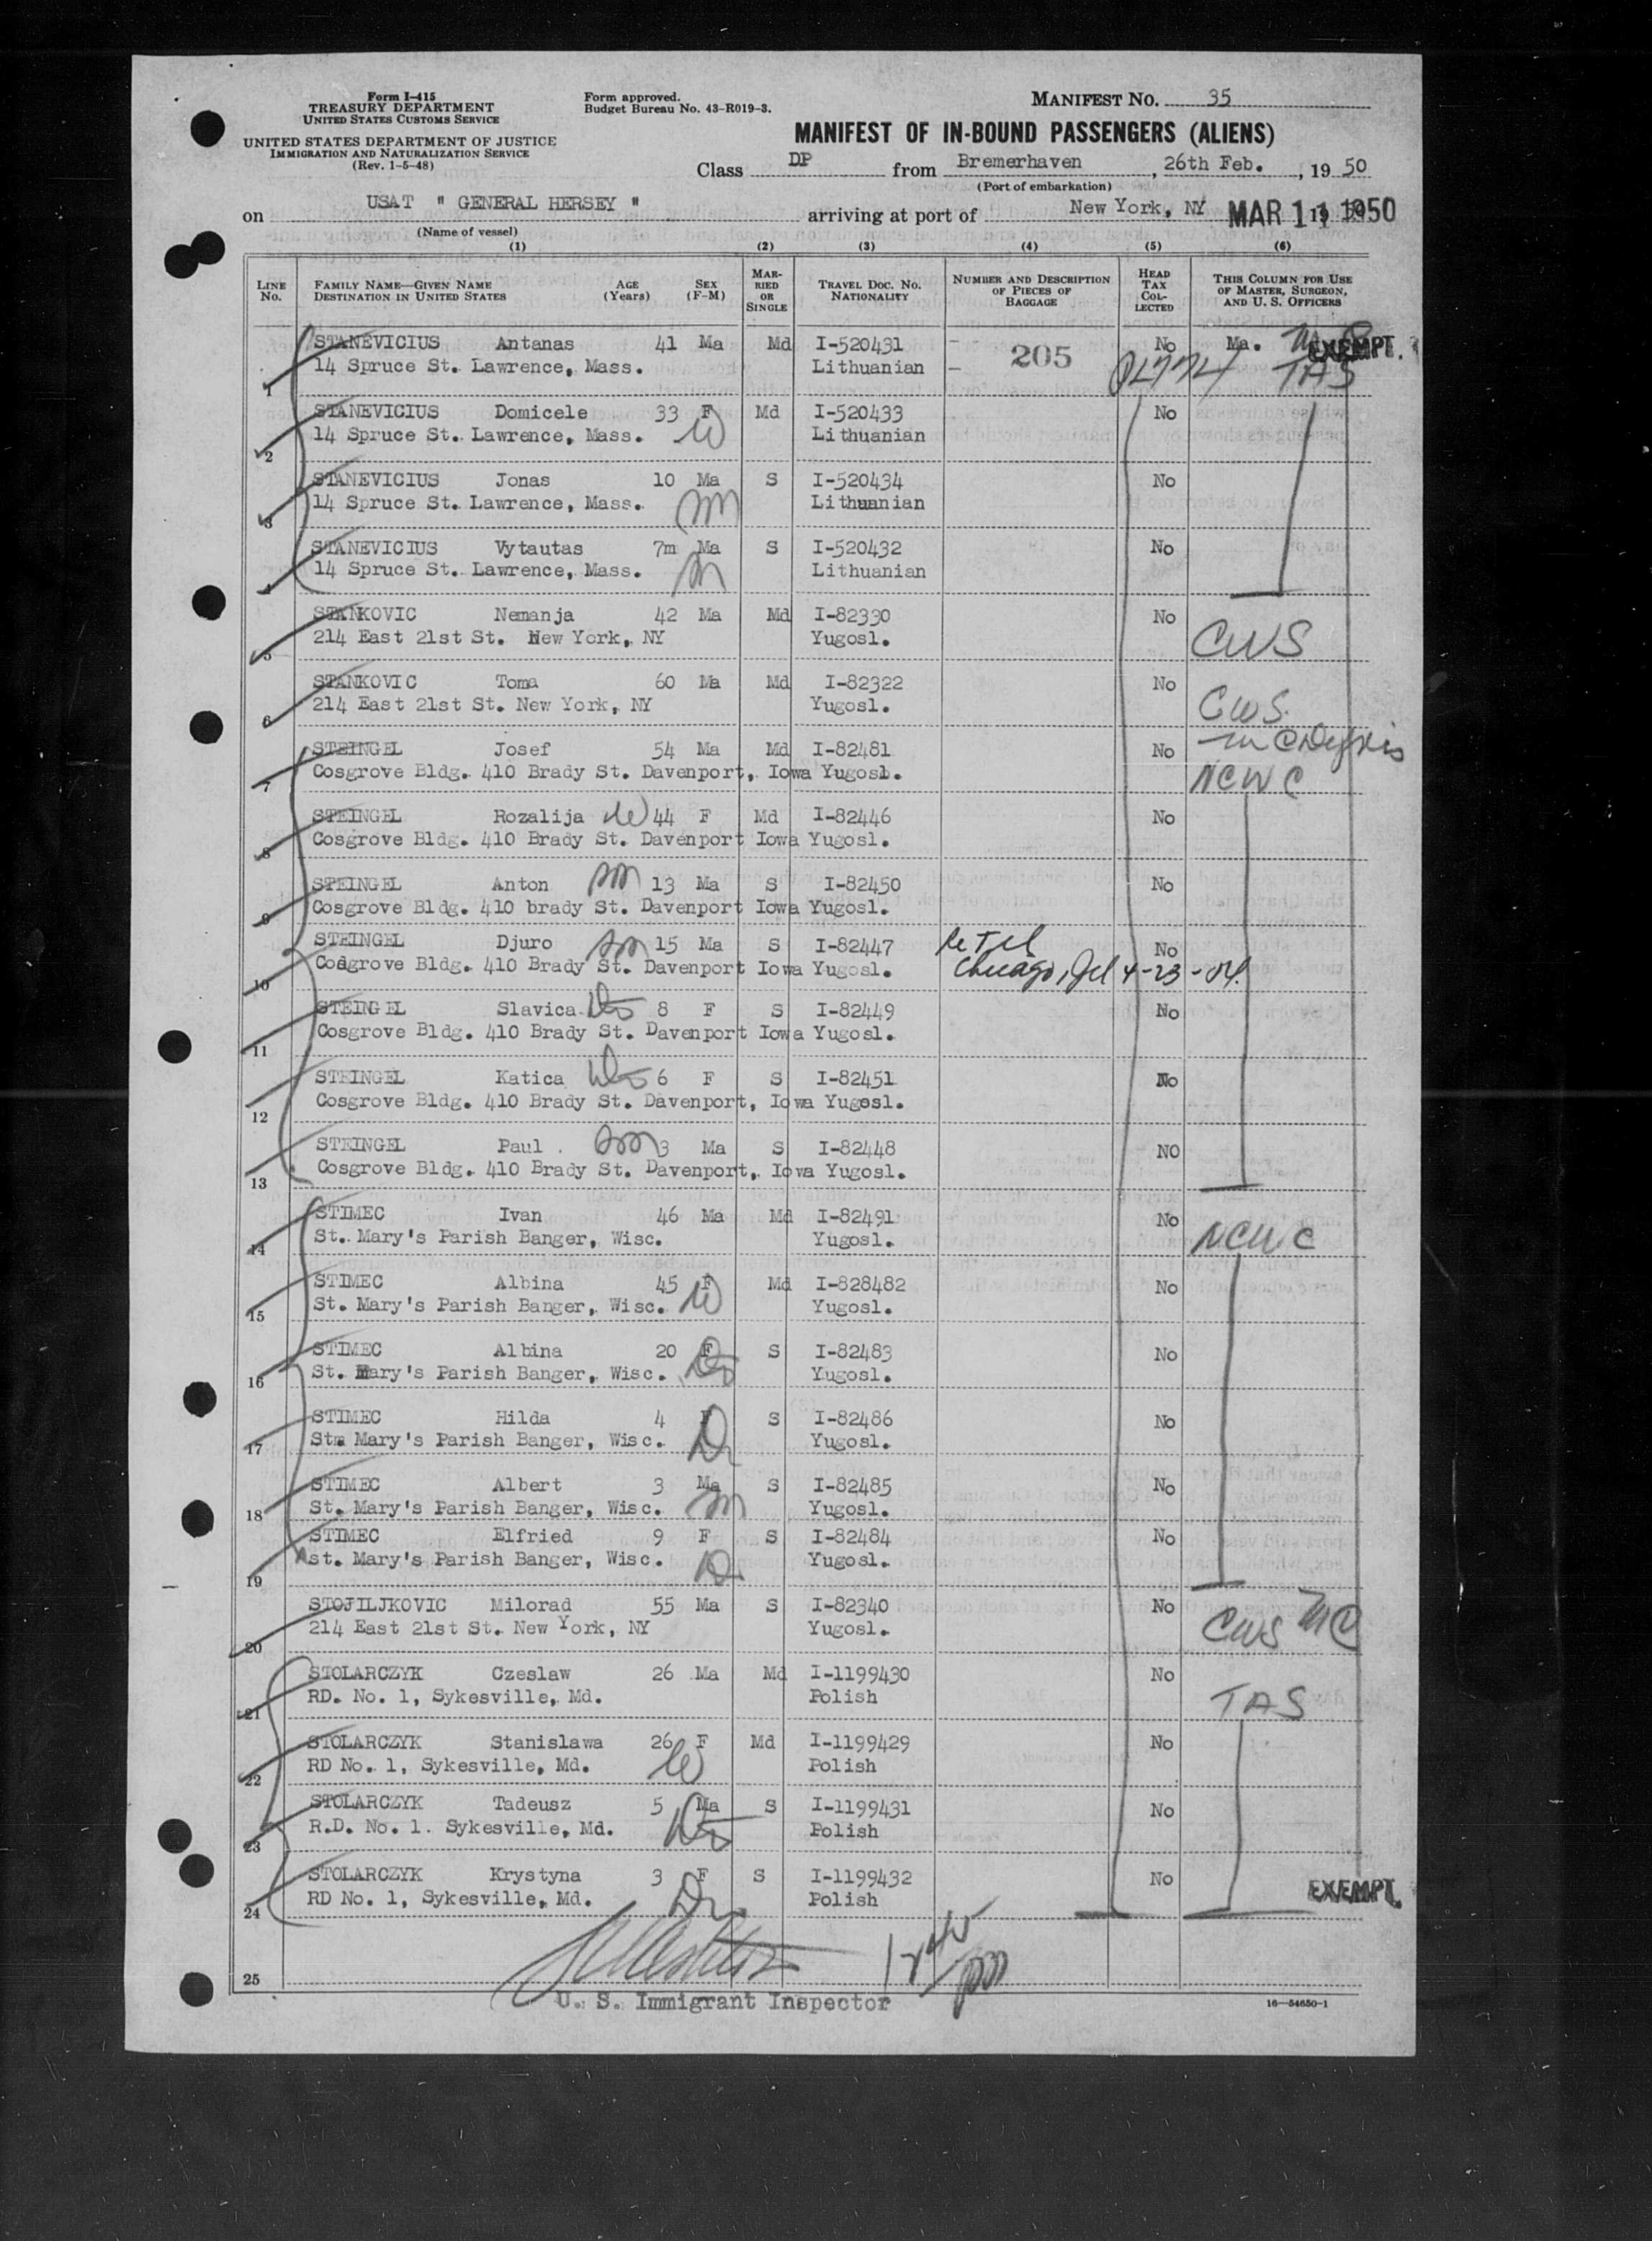 Form I-415
TREASURY DEPARTMENT
UNITED STATES CUSTOMS SERVICE
UNITED STATES DEPARTMENT OF JUSTICE
IMMIGRATION AND NATURALIZATION SERVICE
(Rev. 1-5-48)
Form approved.
Budget Bureau No. 43-R019-3.
MANIFEST NO. 35
MANIFEST OF IN-BOUND PASSENGERS (ALIENS)
Class DP from Bremerhaven, 26th Feb., 1950
(Port of embarkation)
on USAT " GENERAL HERSEY " arriving at port of New York, NY MAR 11 1950
(Name of vessel)
(1) (2) (3) (4) (5) (6)
LINE NO. FAMILY NAME—GIVEN NAME DESTINATION IN UNITED STATES AGE (Years) SEX (F-M) MARRIED OR SINGLE TRAVEL DOC. NO. NATIONALITY NUMBER AND DESCRIPTION OF PIECES OF BAGGAGE HEAD TAX COLLECTED THIS COLUMN FOR USE OF MASTER, SURGEON, AND U. S. OFFICERS
STANEVICIUS Antanas 41 Ma Md I-520431 205 No Ma. EXEMPT.
1 14 Spruce St. Lawrence, Mass. Lithuanian TAS
STANEVICIUS Domicele 33 F Md I-520433 No
2 14 Spruce St. Lawrence, Mass. W Lithuanian
STANEVICIUS Jonas 10 Ma S I-520434 No
3 14 Spruce St. Lawrence, Mass. Lithuanian
STANEVICIUS Vytautas 7m Ma S I-520432 No
4 14 Spruce St. Lawrence, Mass. Lithuanian
STANKOVIC Nemanja 42 Ma Md I-82330 No
5 214 East 21st St. New York, NY Yugosl. CWS
STANKOVIC Toma 60 Ma Md I-82322 No
6 214 East 21st St. New York, NY Yugosl. CWS
STEINGEL Josef 54 Ma Md I-82481 No
7 Cosgrove Bldg. 410 Brady St. Davenport, Iowa Yugosl. NCWC
STEINGEL Rozalija W 44 F Md I-82446 No
8 Cosgrove Bldg. 410 Brady St. Davenport Iowa Yugosl.
STEINGEL Anton 13 Ma S I-82450 No
9 Cosgrove Bldg. 410 brady St. Davenport Iowa Yugosl.
STEINGEL Djuro 15 Ma S I-82447 No
10 Codgrove Bldg. 410 Brady St. Davenport Iowa Yugosl. Chicago, 4-23-
STEINGEL Slavica 8 F S I-82449 No
11 Cosgrove Bldg. 410 Brady St. Davenport Iowa Yugosl.
STEINGEL Katica 6 F S I-82451 No
12 Cosgrove Bldg. 410 Brady St. Davenport, Iowa Yugosl.
STEINGEL Paul . 3 Ma S I-82448 NO
13 Cosgrove Bldg. 410 Brady St. Davenport, Iowa Yugosl.
STIMEC Ivan 46 Ma Md I-82491 No
14 St. Mary's Parish Banger, Wisc. Yugosl. NCWC
STIMEC Albina 45 F Md I-828482 No
15 St. Mary's Parish Banger, Wisc. W Yugosl.
STIMEC Albina 20 F S I-82483 No
16 St. Mary's Parish Banger, Wisc. Yugosl.
STIMEC Hilda 4 F S I-82486 No
17 Stm Mary's Parish Banger, Wisc. Yugosl.
STIMEC Albert 3 Ma S I-82485 No
18 St. Mary's Parish Banger, Wisc. Yugosl.
STIMEC Elfried 9 F S I-82484 No
19 st. Mary's Parish Banger, Wisc. Yugosl.
STOJILJKOVIC Milorad 55 Ma S I-82340 No
20 214 East 21st St. New York, NY Yugosl. CWS
STOLARCZYK Czeslaw 26 Ma Md I-1199430 No
21 RD. No. 1, Sykesville, Md. Polish TAS
STOLARCZYK Stanislawa 26 F Md I-1199429 No
22 RD No. 1, Sykesville, Md. W Polish
STOLARCZYK Tadeusz 5 Ma S I-1199431 No
23 R.D. No. 1. Sykesville, Md. Polish
STOLARCZYK Krystyna 3 F S I-1199432 No EXEMPT.
24 RD No. 1, Sykesville, Md. Polish
25
U. S. Immigrant Inspector
16—54650-1